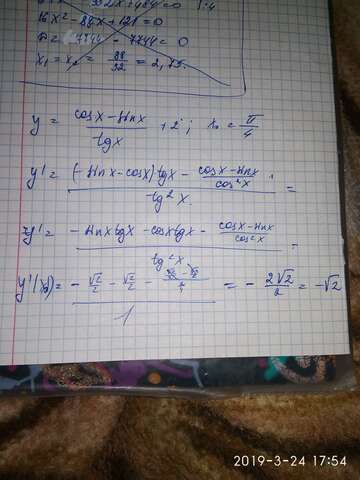 16x² - 88x + 121 = 0
x₁ = x₂ = 88/32 = 2,75.
y = (cosx - sinx)/tgx + 2 ; x₀ = π/4
y' = ((-sinx - cosx)tgx - (cosx - sinx)/cos²x)/tg²x =
y' = (-sinx tgx - cosx tgx - (cosx - sinx)/cos²x)/tg²x =
y'(x₀) = (-√2/2 - √2/2 -)/1 = -2√2/2 = -√2
2019-3-24 17:54